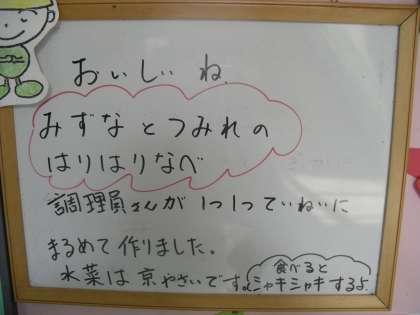 おいしい ね
みずなとつみれの
はりはりなべ
調理員さんが 1つ1つていねいに
まるめて作りました。
水菜は京やさいです。
食べると
シャキシャキするよ